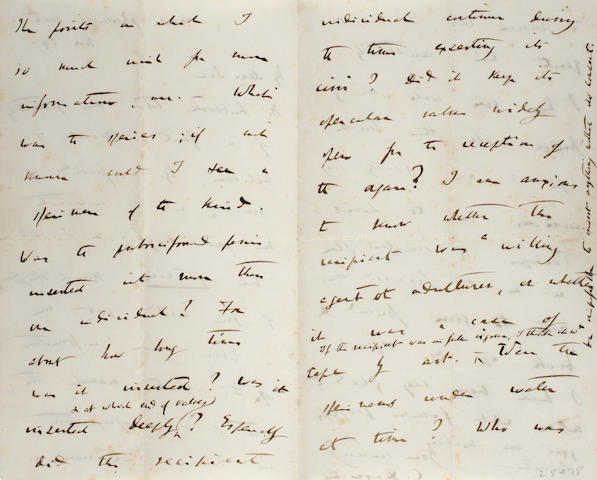 The points on which I
so much wish for more
information, are. — Which
was the species; if not
known could I see a
specimen of the kind.
Was the probosciformed penis
inserted into more than
one individual? For
about how long time
was it inserted? Was it
& at which end of valves
inserted deeply? Especially
did the recipient
individual continue during
the time exserting its
cirri? Did it keep its
opercular valves widely
open for the reception of
the organ? I am anxious
to know whether the
recipient was a willing
agent or adulterer, or whether
it was a case of
If the recipient was in full vigour, I think it wd
rape by act. Were the
specimens under water
at time? Who was
be impossible to insert anything without its consent.
25478